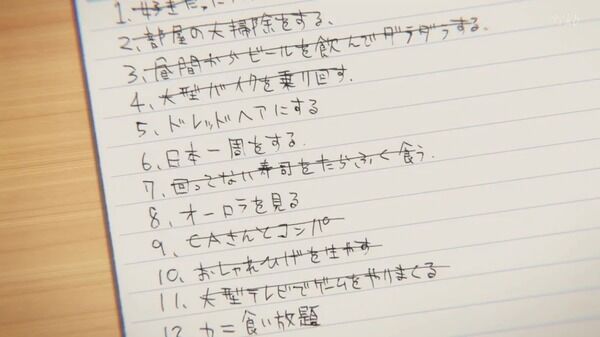 1. 好きだった
2、部屋の大掃除をする、
3、昼間からビールを飲んでダラダラする.
4、大型バイクを乗り回す.
5、ドレッドヘアにする
6、日本一周をする.
7、回ってない寿司をたらふく食う.
8、オーロラを見る
9、CAさんとコンパ
10、おしゃれひげを生やす
11、大型テレビでゲームをやりまくる
12 カニ食い放題